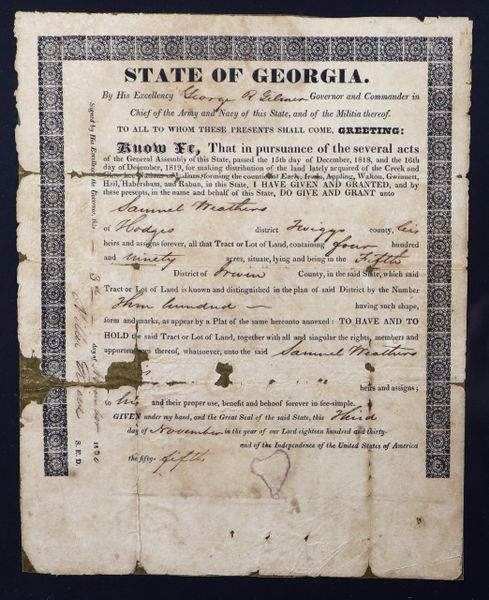 STATE OF GEORGIA.
By His Excellency George R Gilmer Governor and Commander in
Chief of the Army and Navy of this State, and of the Militia thereof.
TO ALL TO WHOM THESE PRESENTS SHALL COME, GREETING:
Know Ye, That in pursuance of the several acts
of the General Assembly of this State, passed the 15th day of December, 1818, and the 16th
day of December, 1819, for making distribution of the land lately acquired of the Creek and
forming the counties of Early, Irwin, Appling, Walton, Gwinnett,
Hall, Habersham, and Rabun, in this State, I HAVE GIVEN AND GRANTED, and by
these presents, in the name and behalf of this State, DO GIVE AND GRANT unto
Samuel Weathers
of Hodges district Twiggs county, his
heirs and assigns forever, all that Tract or Lot of Land, containing four hundred
and ninety acres, situate, lying and being in the Fifth
District of Irwin County, in the said State, which said
Tract or Lot of Land is known and distinguished in the plan of said District by the Number
Three hundred — having such shape,
form and marks, as appear by a Plat of the same hereunto annexed: TO HAVE AND TO
HOLD the said Tract or Lot of Land, together with all and singular the rights, members and
appurtenances thereof, whatsoever, unto the said Samuel Weathers
heirs and assigns;
to his and their proper use, benefit and behoof forever in fee-simple.
GIVEN under my hand, and the Great Seal of the said State, this Third
day of November in the year of our Lord eighteen hundred and thirty-
and of the Independence of the United States of America
the fifty-fifth
Signed by His Excellency the Governor, this 3rd day of 1830
S. E. D.